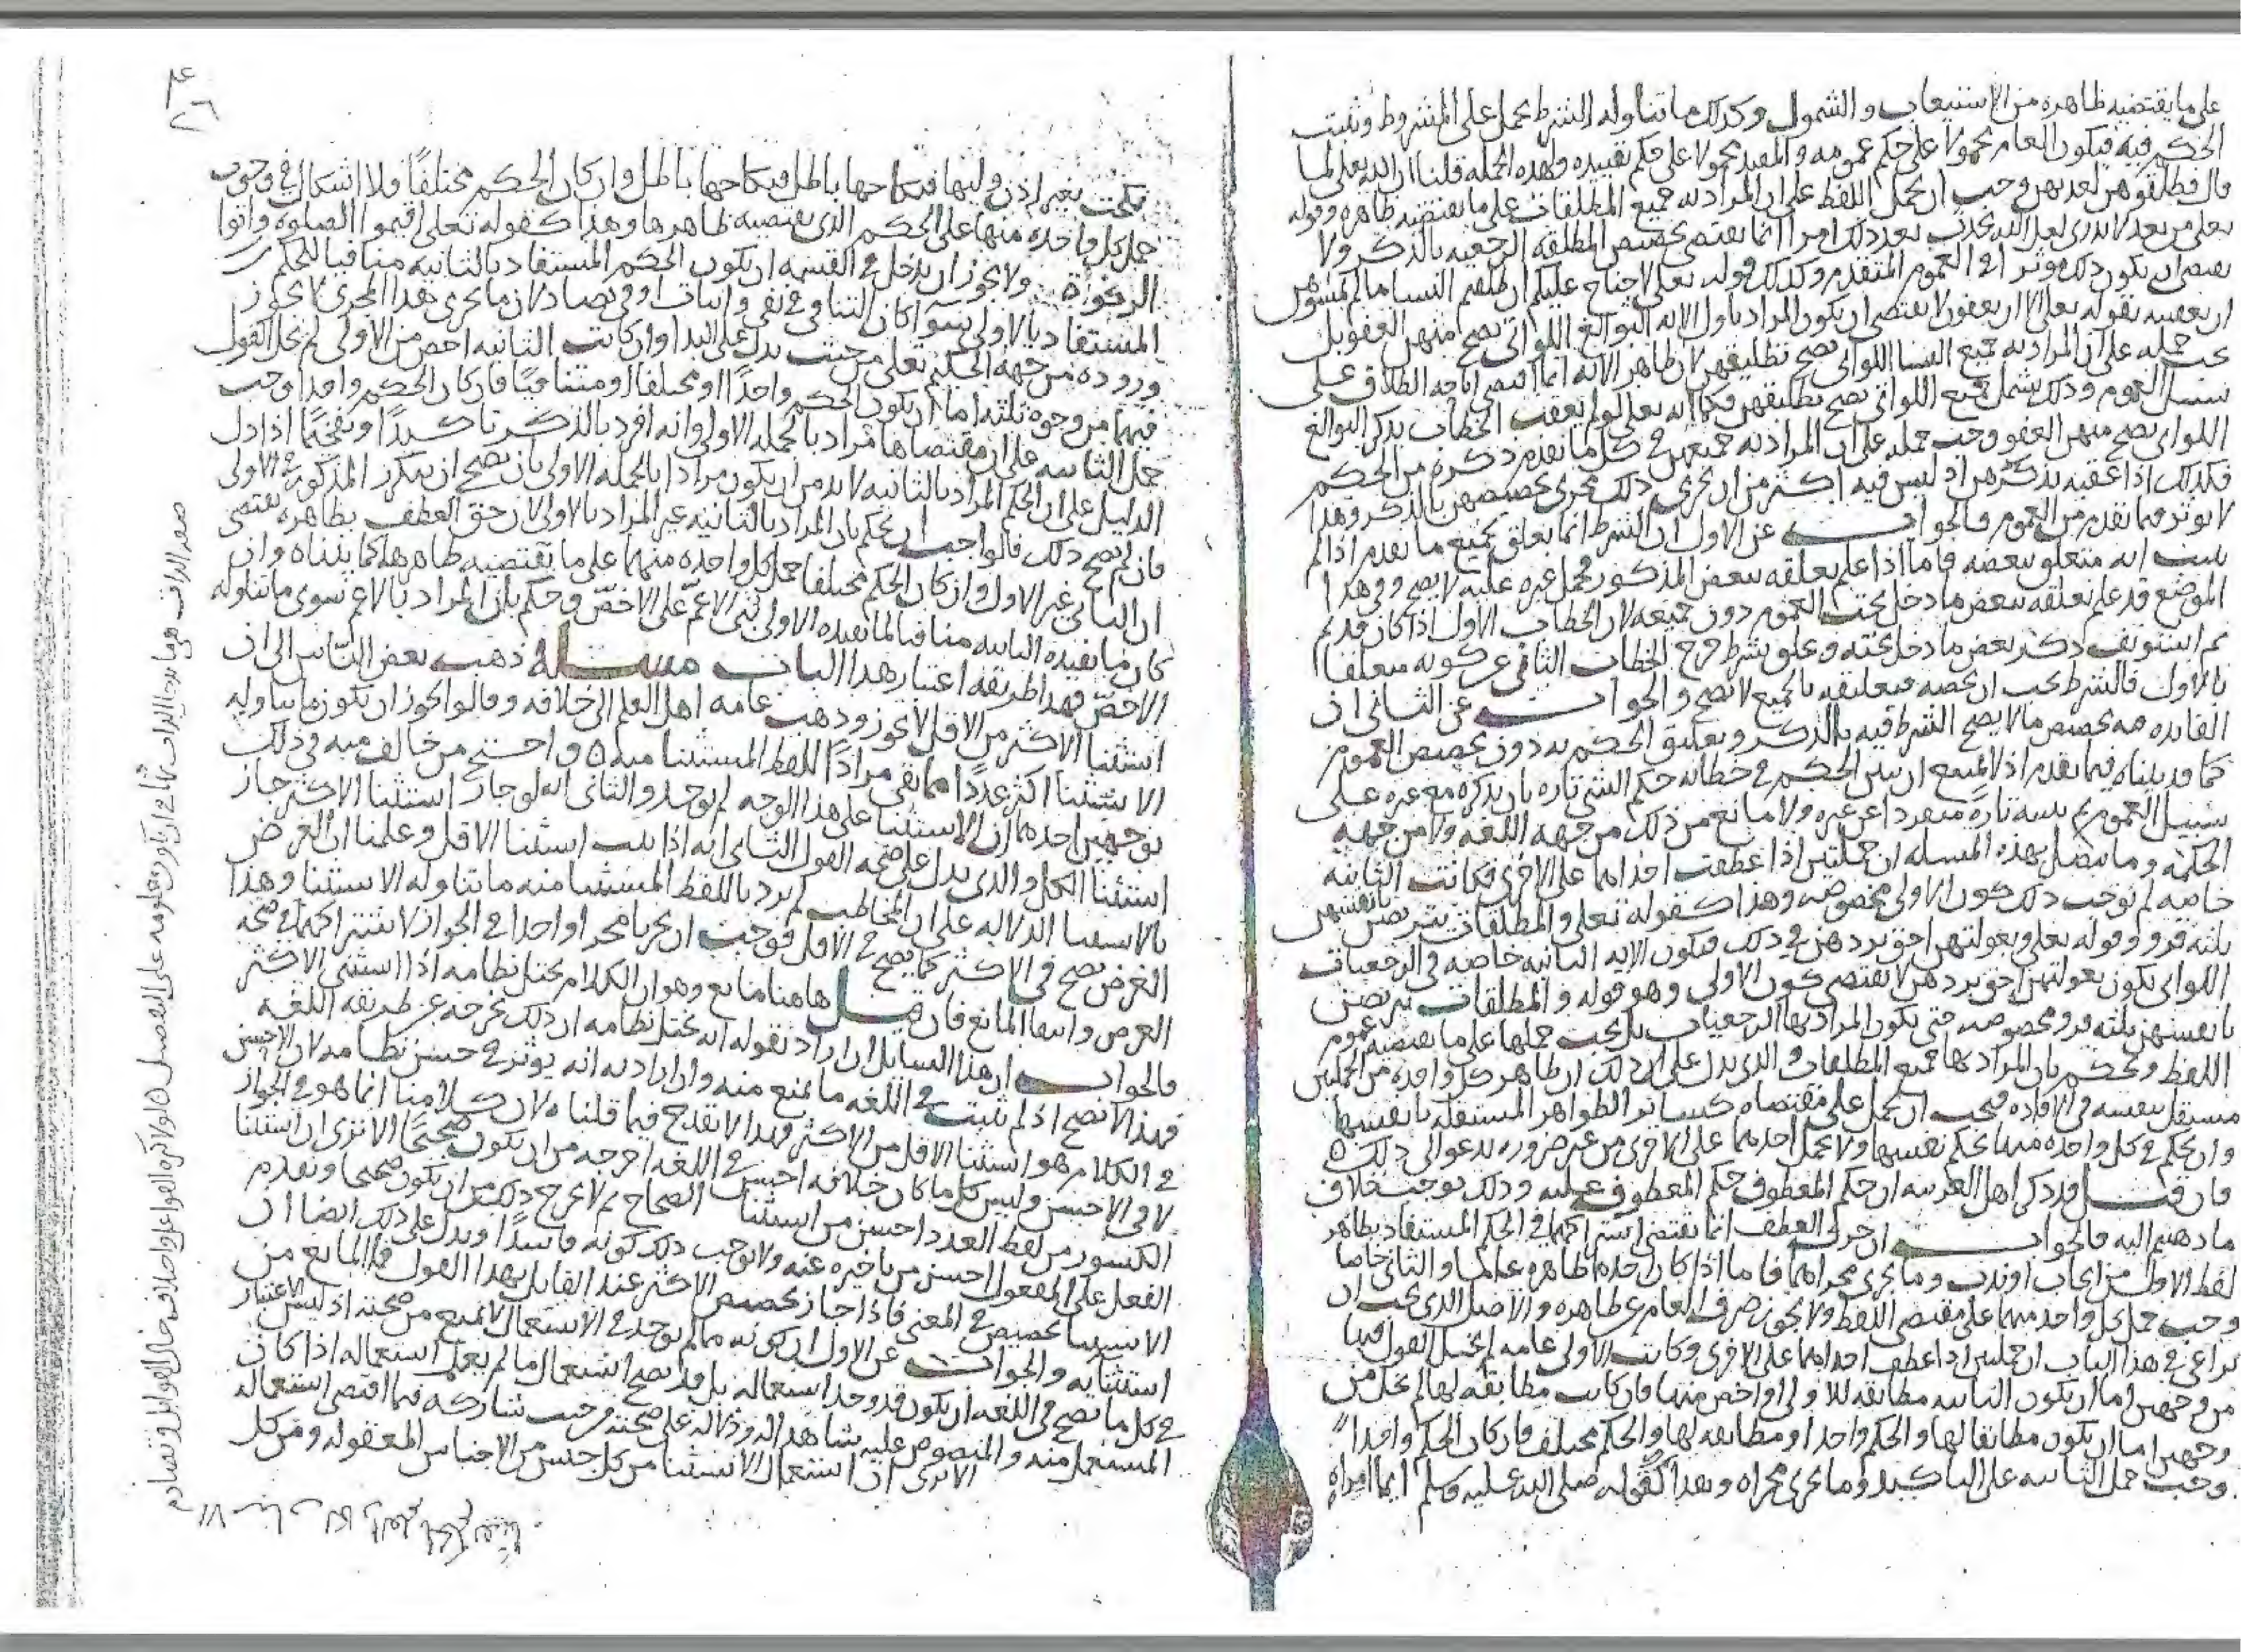 على ما يقتضيه ظاهره من الاستيعاب والشمول وكذلك ما تناوله الشرط يحمل على المشروط ويثبت
الحكم فيه فيكون العام محمولا على حكم عمومه والمقيد محمولا على حكم تقييده ولهذه الجملة قلنا ان الله تعلى لما
قال فطلقوهن لعدتهن وجب ان يحمل اللفظ على ان المراد به جميع المطلقات على ما يقتضيه ظاهره وقوله
تعلى من بعد لا تدري لعل الله يحدث بعد ذلك امرا انما يقتضي تخصيص المطلقة الرجعية بالذكر ولا
يقتضي ان يكون ذلك مؤثرا في العموم المتقدم وكذلك قوله تعلى لا جناح عليكم ان طلقتم النسا ما لم تمسوهن
ان تعقيبه بقوله تعلى الا ان يعفون لا يقتضي ان يكون المراد باول الاية البوالغ اللواتي يصح منهن العفو بل
يجب حمله على ان المراد به جميع النسا اللواتي يصح تطليقهن لان ظاهر الاية انما اقتضى اباحة الطلاق على
سبيل العموم وذلك يشمل جميع اللواتي يصح تطليقهن فكما انه تعالى لو لم يعقب الخطاب بذكر البوالغ
اللواتي يصح منهن العفو وجب حمله على ان المراد به جميعهن في كل ما تقدم ذكره من الحكم
فكذلك اذا عقبه بذكرهن اذ ليس فيه اكثر من ان يجري ذلك مجرى تخصيصهن بالذكر وهذا
لا يوثر فيما تقدم من العموم فالجواب عن الاول ان الشرط انما يعلق بجميع ما تقدم اذا لم
يثبت انه متعلق ببعضه فاما اذا علم تعلقه ببعض المذكور فحمل غيره عليه لا يصح وفي هذا
الموضع قد علم تعلقه ببعض ما دخل تحت العموم دون جميعه لان الخطاب الاول اذا كان قد تم
ثم استونف ذكر بعض ما دخل تحته وعلق بشرط خرج الخطاب الثاني عن كونه متعلقا
بالاول فالشرط يجب ان يخصه فتعليقه بالجميع لا يصح والجواب عن الثاني ان
الفايدة فيه تخصيص ما لا يصح الشرط فيه بالذكر وتعليق الحكم به دون تخصيص العموم
كما قد بيناه فيما تقدم اذ لا يمتنع ان يبين الحكيم في خطابه حكم الشي تارة بان يذكره مع غيره على
سبيل العموم ثم يبينه تارة منفردا عن غيره ولا مانع من ذلك من جهة اللغة ولا من جهة
الحكمة وما يتصل بهذه المسلة ان جملتين اذا عطفت احداهما على الاخرى فكانت الثانية
خاصة لم يوجب ذلك كون الاولى مخصوصة وهذا كقوله تعلى والمطلقات يتربصن بانفسهن
ثلثة قرو وقوله تعلى وبعولتهن احق بردهن في ذلك فيكون الاية الثانية خاصة في الرجعيات
اللواتي يكون بعولتهن احق بردهن لا يقتضي كون الاولى وهو قوله والمطلقات يتربصن
بانفسهن ثلثة قرو مخصوصة حتى يكون المراد بها الرجعيات بل يجب حملها على ما يقتضيه عموم
اللفظ ونحكم بان المراد بها جميع المطلقات والذي يدل على ذلك ان ظاهر كل واحدة من الجملتين
مستقل بنفسه في الافادة فيجب ان يحمل على مقتضاه كسائر الظواهر المستقلة بانفسها
وان يحكم في كل واحدة منهما بحكم نفسها ولا يحمل احدهما على الاخرى من غير ضرورة تدعو الى ذلك
فان قيل قد ذكر اهل العربية ان حكم المعطوف حكم المعطوف عليه وذلك يوجب خلاف
ما ذهبتم اليه فالجواب ان حرف العطف انما يقتضي اشتراكهما في الحكم المستفاد بظاهر
لفظ الاول من ايجاب او ندب وما يجري مجراهما فاما اذا كان احدهما ظاهره عاما والثاني خاصا
وجب حمل كل واحد منهما على مقتضى اللفظ ولا يجوز صرف العام عن ظاهره والاصل الذي يجب ان
يراعى في هذا الباب ان جملتين اذا عطف احداهما على الاخرى وكانت الاولى عامة لم يخل القول فيها
من وجهين اما ان يكون الثانية مطابقة للاولى او اخص منها فان كانت مطابقة لها لم يخل من
وجهين اما ان يكون مطابقا لها والحكم واحدا او مطابقة لها والحكم مختلف فان كان الحكم واحدا
وجب حمل الثانية على التاكيد وما يجري مجراه وهذا كقوله صلى الله عليه وسلم ايما امراة
نكحت بغير اذن وليها فنكاحها باطل فنكاحها باطل وان كان الحكم مختلفا فلا اشكال في وجوب
حمل كل واحدة منها على الحكم الذي يقتضيه ظاهرها وهذا كقوله تعلى اقيموا الصلوة واتوا
الزكوة ولا يجوز ان يدخل في القسمة ان يكون الحكم المستفاد بالثانية منافيا للحكم
المستفاد بالاولى سوا كان التنافي في نفي واثبات او في تضاد لان ما يجري هذا المجرى لا يجوز
وروده من جهة الحكيم تعلى من حيث يدل على البدا وان كانت الثانية اخص من الاولى لم يخل القول
فيهما من وجوه ثلثة اما ان يكون الحكم واحدا او مختلفا او متنافيا فان كان الحكم واحدا وجب
حمل الثانية على ان مقتضاها مراد بالجملة الاولى وانه افرد بالذكر تاكيدا وتفخيما اذا دل
الدليل على ان الحكم المراد بالثانية لا بد من ان يكون مرادا بالجملة الاولى بان يصح ان يتكرر المذكور في الاولى
فان لم يصح ذلك فالواجب ان يحكم بان المراد بالثانية غير المراد بالاولى لان حق العطف بظاهره يقتضي
ان الثاني غير الاول وان كان الحكم مختلفا حمل كل واحدة منهما على ما يقتضيه ظاهرها كما بيناه وان
كان ما يفيده الثانية منافيا لما تفيده الاولى بني الاعم على الاخص وحكم بان المراد بالاعم سوى ما تناوله
الاخص فهذا طريقة اعتبار هذا الباب مسئلة ذهب بعض الناس الى ان
استثنا الاكثر من الاقل لا يجوز وذهب عامة اهل العلم الى خلافه وقالوا يجوز ان يكون ما يتناوله
الاستثنا اكثر عددا مما بقي مرادا باللفظ المستثنا منه واحتج من خالف فيه في ذلك
بوجهين احدهما ان الاستثنا على هذا الوجه لم يوجد والثاني انه لو جاز استثنا الاكثر جاز
استثنا الكل والذي يدل على صحة القول الثاني انه اذا ثبت استثنا الاقل وعلمنا ان الغرض
بالاستثنا الدلالة على ان المخاطب لم يرد باللفظ المستثنا منه ما تناوله الاستثنا وهذا
الغرض يصح في الاكثر كما يصح في الاقل فوجب ان يجريا مجرا واحدا في الجواز لاشتراكهما في صحة
الغرض وانتفا المانع فان قيل هاهنا مانع وهو ان الكلام يختل نظامه اذا استثني الاكثر
فالجواب ان هذا السايل ان اراد بقوله انه يختل نظامه ان ذلك يخرجه عن طريقة اللغة
فهذا لا يصح اذ لم يثبت في اللغة ما يمنع منه وان اراد به انه يوثر في حسن نظامه لان الاحسن
في الكلام هو استثنا الاقل من الاكثر فهذا لا يقدح فيما قلناه لان كلامنا انما هو في الجواز
لا في الاحسن وليس كل ما كان خلافه احسن في اللغة اخرجه من ان يكون صحيحا الا ترى ان استثنا
الكسور من لفظ العدد احسن من استثنا الصحاح ثم لا يخرج ذلك من ان يكون صحيحا وتقدم
الفعل على المفعول احسن من تاخيره عنه ولا يوجب ذلك كونه فاسدا ويدل على ذلك ايضا ان
الاستثنا تخصيص في المعنى فاذا جاز تخصيص الاكثر عند القايل بهذا القول فما المانع من
استثنايه والجواب عن الاول ان كونه مما لم يوجد في الاستعمال لا يمنع من صحته اذ ليس الاعتبار
في كل ما يصح في اللغة ان يكون قد وجد استعماله بل قد يصح استعمال ما لم يعلم استعماله اذا كان
المستعمل منه والمنصوص عليه شاهدا له ودلالة على صحته من حيث شاركه فيما اقتضى استعماله
الا ترى ان استعمال الاستثنا من كل جنس من الاجناس المعقولة ومن كل